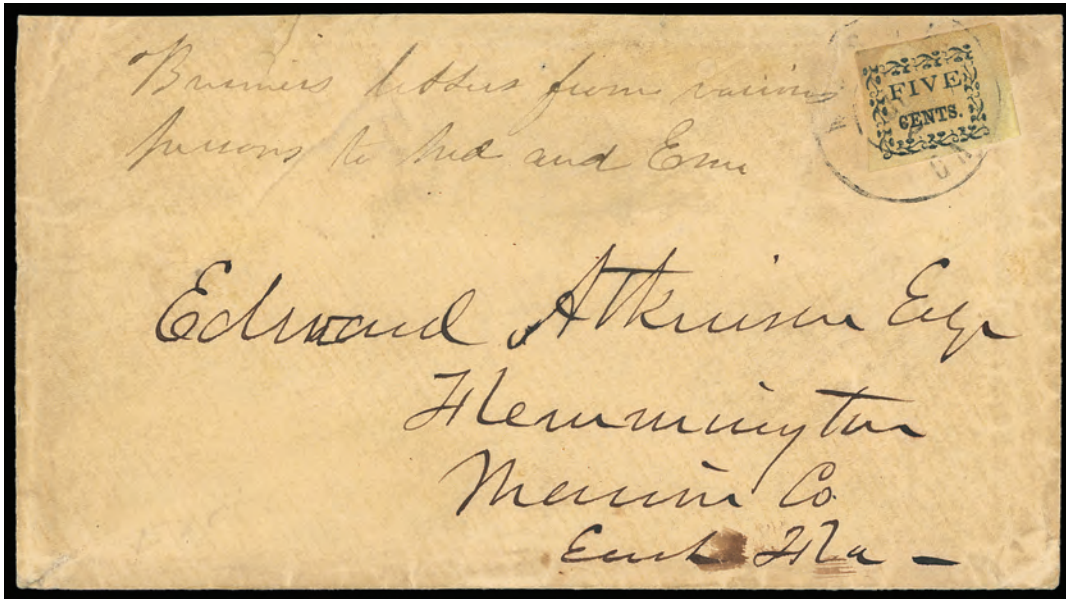 Business letters from various
persons to Med and Em
FIVE
CENTS.
Edward Atkinson Esqr
Flemmington
Marion Co.
East Fla